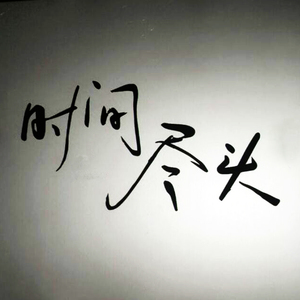 时间
尽头